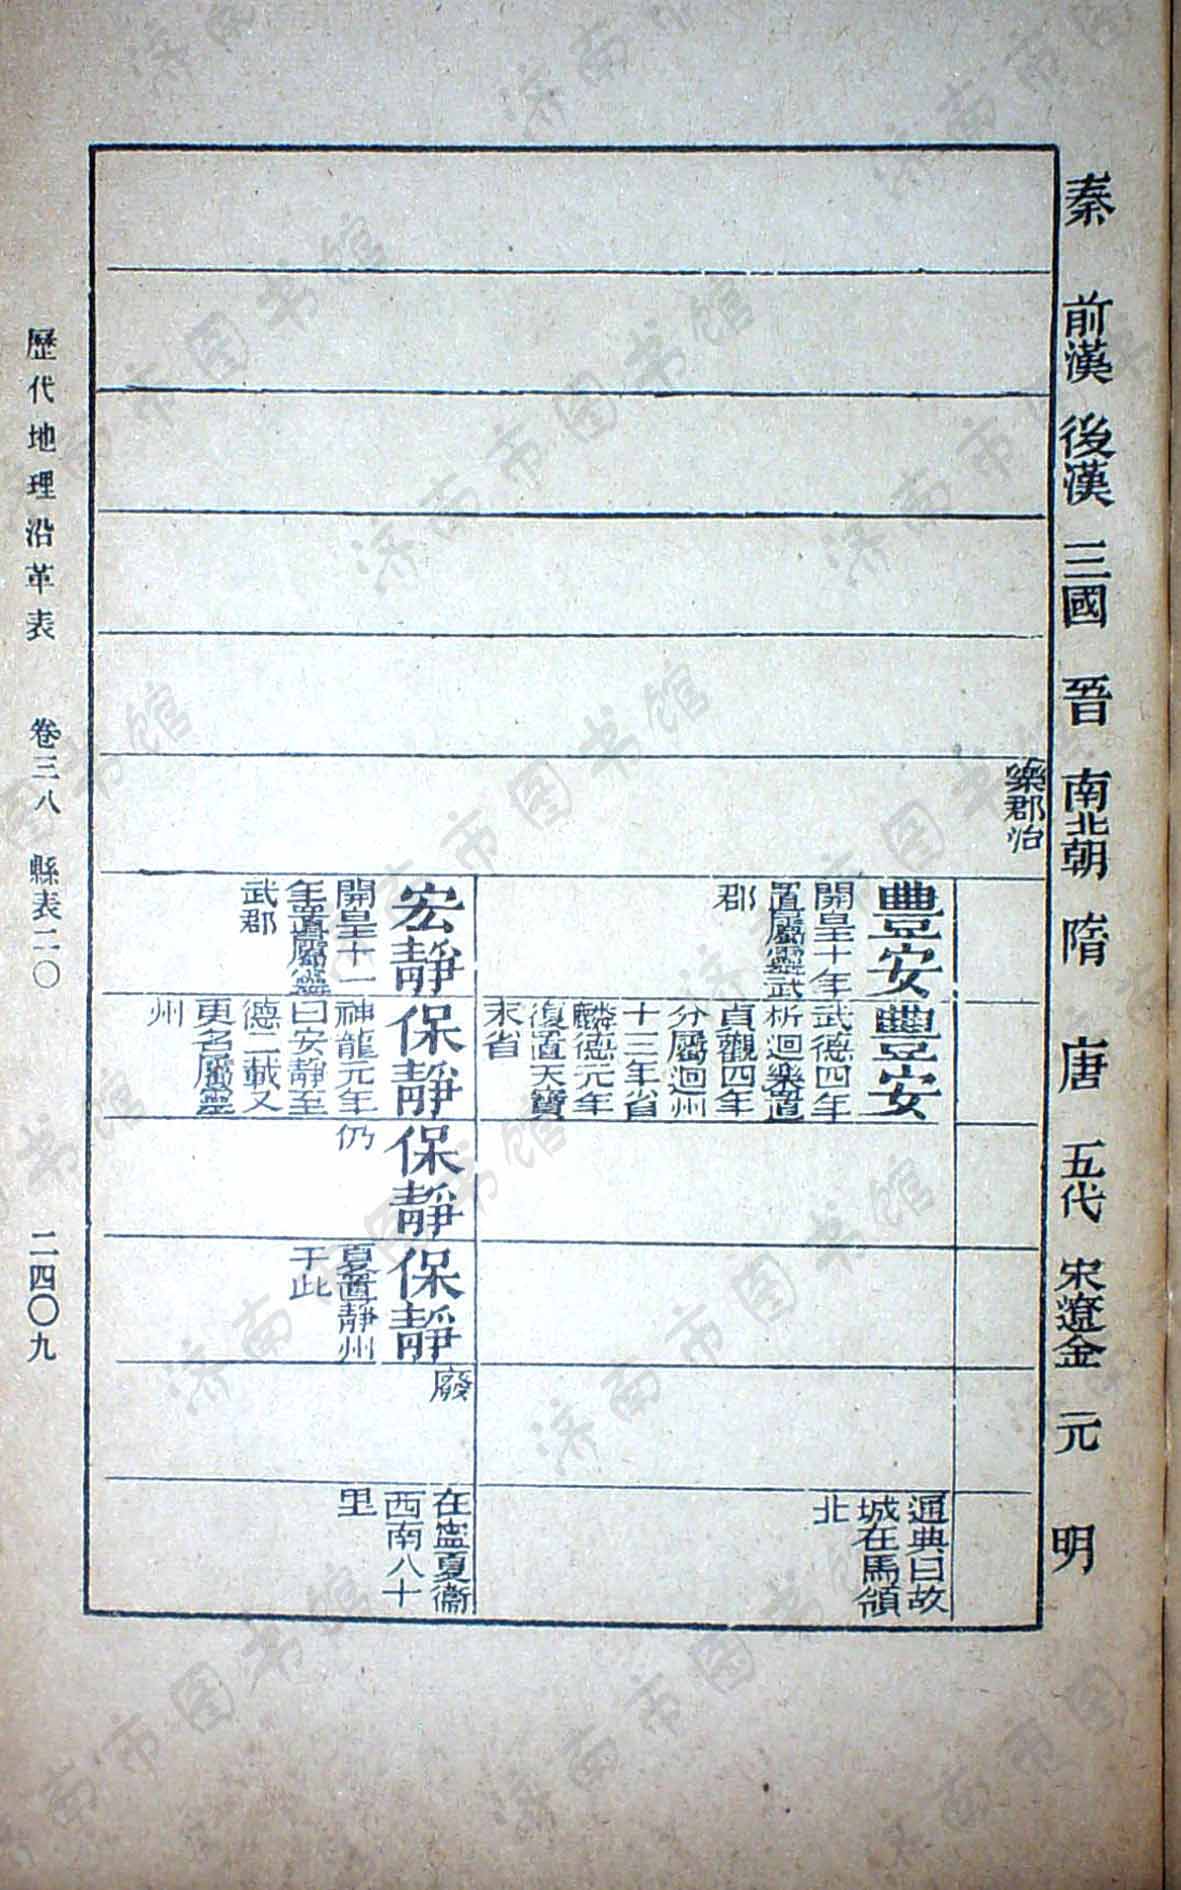 秦
前漢
後漢
三國
晉
南北朝
隋
唐
五代
宋遼金
元
明
樂郡治
豐安
開皇十年
置屬靈武
郡
豐安
武德四年
析迴樂置
貞觀四年
分屬迴州
十三年省
麟德元年
復置天寶
末省
通典曰故
城在馬領
北
宏靜
開皇十一
年置屬靈
武郡
保靜
神龍元年
曰安靜至
德二載又
更名屬靈
州
保靜
仍
保靜
夏置靜州
于此
廢
在寧夏衞
西南八十
里
歷代地理沿革表 卷三八 縣表二〇 二四〇九
济南市图书馆